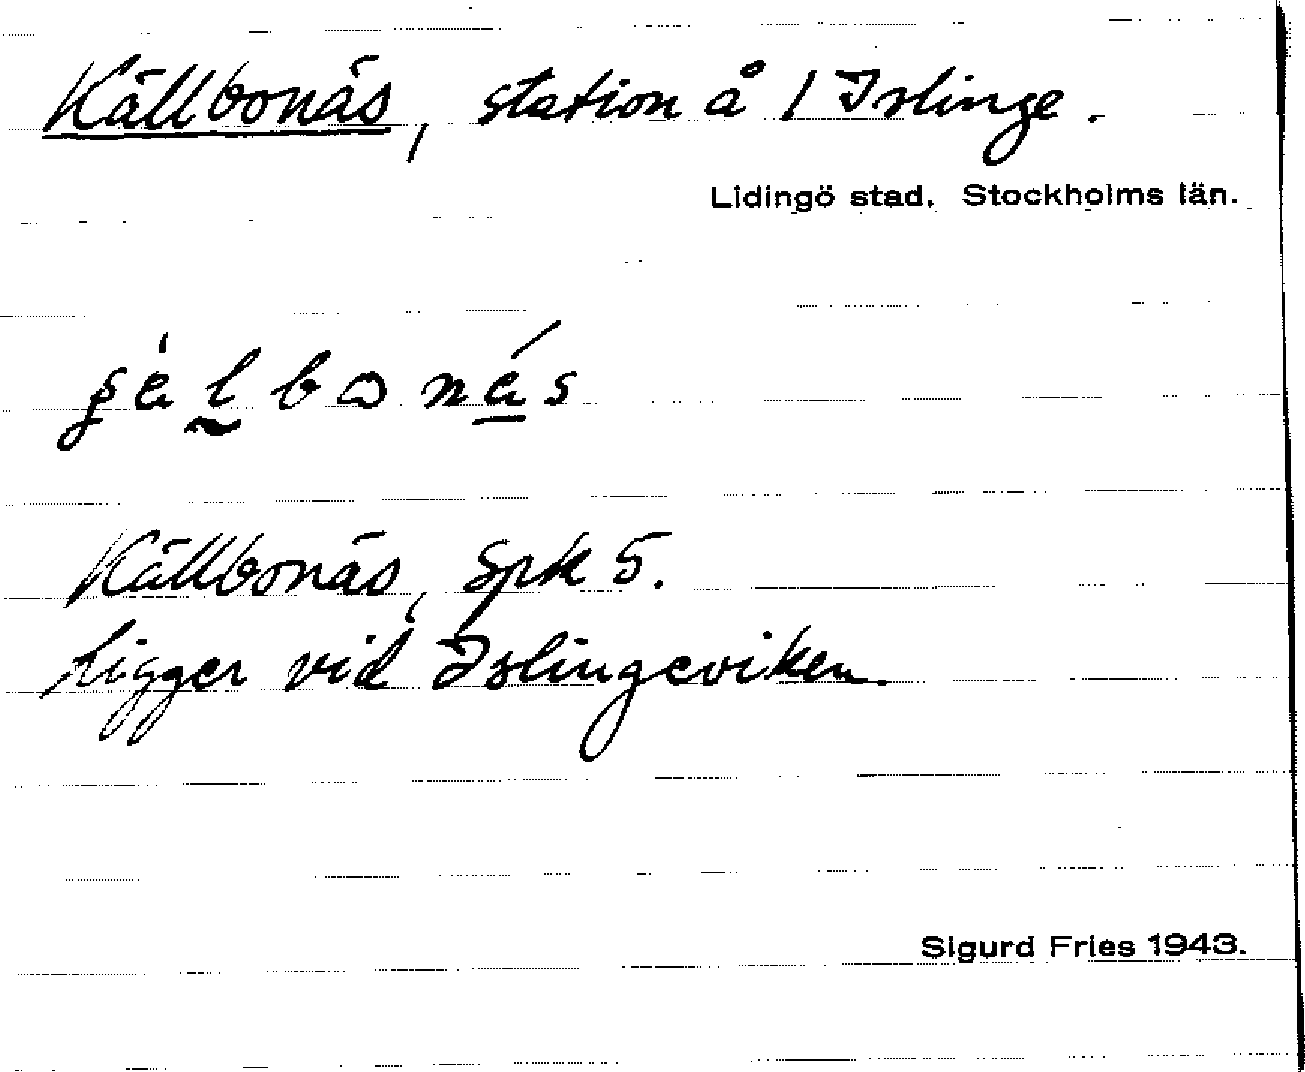 Källbonäs, station å 1 Islinge.
Lidingö stad. Stockholms län.
Källbonäs, Spk 5.
Ligger vid Islingeviken.
Sigurd Fries 1943.